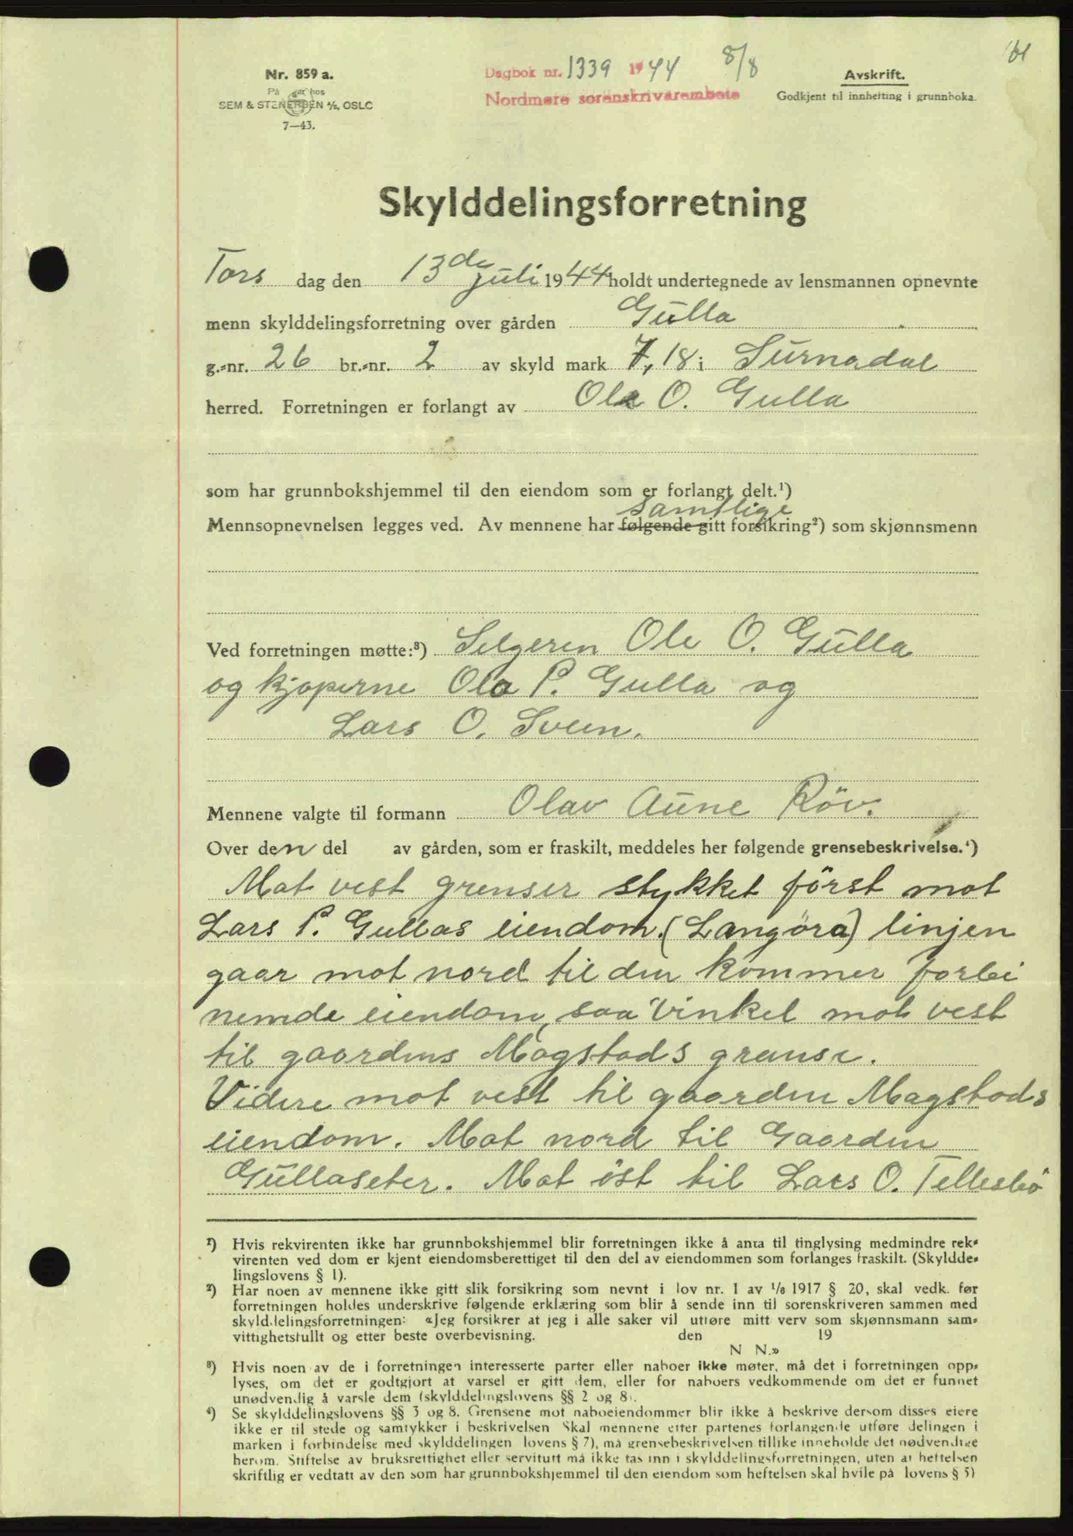 161
Nr. 859 a.
På lager hos
SEM & STENERSEN A/S, OSLO
7—43.
Dagbok nr. 1339 1944 8/8
Nordmøre sorenskrivarembete
Avskrift.
Godkjent til innhefting i grunnboka.
Skylddelingsforretning
Tors dag den 13de juli 1944 holdt undertegnede av lensmannen opnevnte
menn skylddelingsforretning over gården Gulla
g.-nr. 26 br.-nr. 2 av skyld mark 7,18 i Surnadal
herred. Forretningen er forlangt av Ole O. Gulla
som har grunnbokshjemmel til den eiendom som er forlangt delt.¹)
samtlige
Mennsopnevnelsen legges ved. Av mennene har følgende gitt forsikring²) som skjønnsmenn
Ved forretningen møtte:³) Selgeren Ole O. Gulla
og kjøperne Ola P. Gulla og
Lars O. Sveen.
Mennene valgte til formann Olav Aune Röv.
Over den del av gården, som er fraskilt, meddeles her følgende grensebeskrivelse.⁴)
Mot vest grenser stykket først mot
Lars P. Gullas eiendom. (Langöra) linjen
gaar mot nord til den kommer forbi
nemde eiendom, saa vinkel mot vest
til gaardens Magstads grense.
Videre mot vest til gaarden Magstads
eiendom. Mot nord til Gaarden
Gullaseter. Mot öst til Lars O. Tellesbö
¹) Hvis rekvirenten ikke har grunnbokshjemmel blir forretningen ikke å anta til tinglysing medmindre rek-
virenten ved dom er kjent eiendomsberettiget til den del av eiendommen som forlanges fraskilt. (Skyldde-
lingslovens § 1).
²) Har noen av mennene ikke gitt slik forsikring som nevnt i lov nr. 1 av 1/6 1917 § 20, skal vedk. før
forretningen holdes underskrive følgende erklæring som blir å sende inn til sorenskriveren sammen med
skylddelingsforretningen: «Jeg forsikrer at jeg i alle saker vil utføre mitt verv som skjønnsmann sam-
vittighetsfullt og etter beste overbevisning. den 19
N N.»
³) Hvis noen av de i forretningen interesserte parter eller naboer ikke møter, må det i forretningen opp-
lyses, om det er godtgjort at varsel er gitt dem, eller for naboers vedkommende om det er funnet
unødvendig å varsle dem (skylddelingslovens §§ 2 og 8).
⁴) Se skylddelingslovens §§ 3 og 8. Grensene mot naboeiendommer blir ikke å beskrive dersom disses eiere
ikke er til stede og samtykker i beskrivelsen Skal mennene etter partenes forlangende utføre delingen i
marken i forbindelse med skylddelingen lovens § 7), må grensebeskrivelsen tillike inneholde det nødvendige
herom. Stiftelse av bruksrettighet eller servitutt må ikke tas inn i skylddelingsforretningen, uten at heftelsen
skriftlig er vedtatt av den som har grunnbokshjemmel til den eiendom som heftelsen skal hvile på lovens § 5)